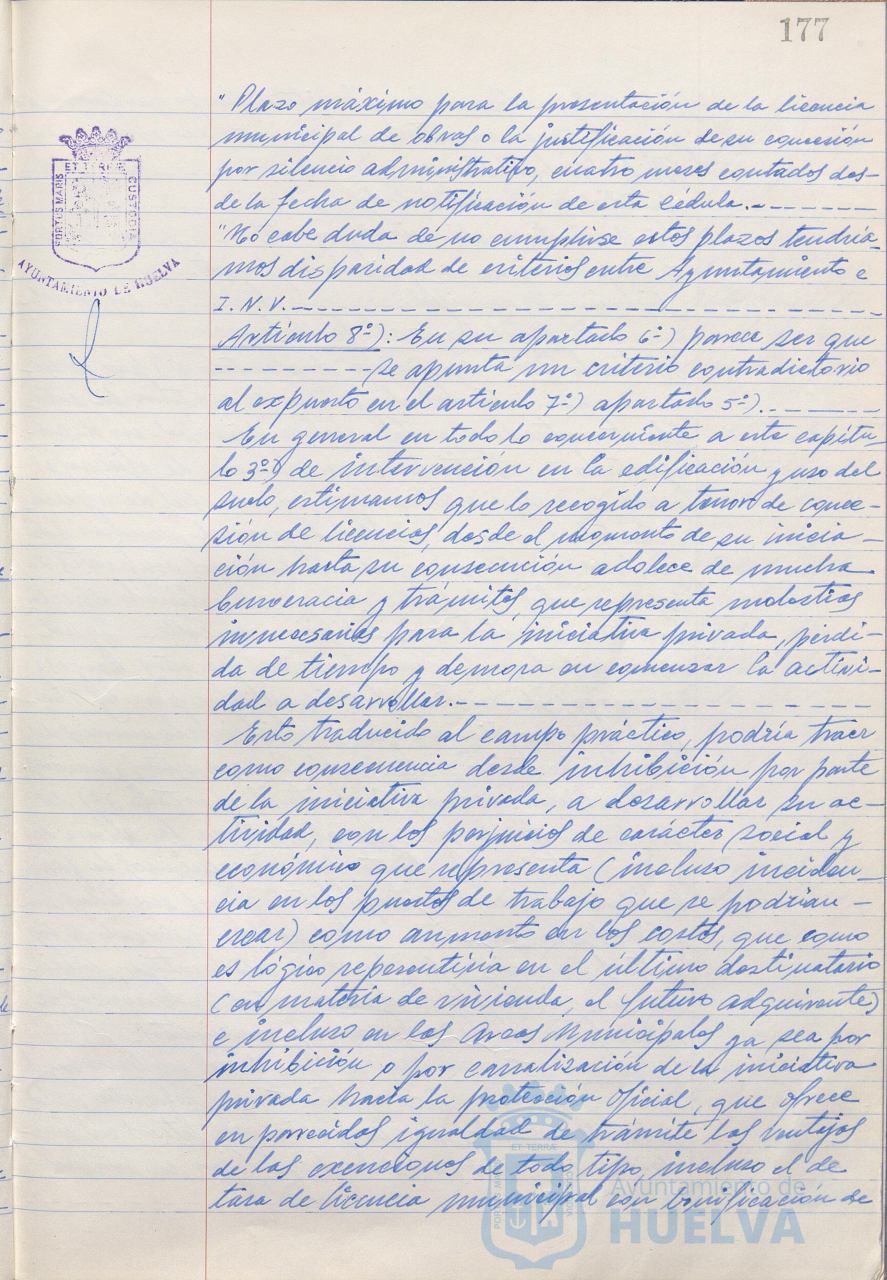 177
"Plazo máximo para la presentación de la licencia
municipal de obras o la justificación de su concesión
por silencio administrativo, cuatro meses contados des-
de la fecha de notificación de esta cédula.
"No cabe duda de no cumplirse estos plazos tendría-
mos disparidad de criterios entre Ayuntamiento e
I.N.V.
Artículo 8º): En su apartado 6º) parece ser que
se apunta un criterio contradictorio
al expuesto en el artículo 7º) apartado 5º).
En general en todo lo concerniente a este capítu-
lo 3º) de intervención en la edificación y uso del
suelo, estimamos que lo recogido a tenor de conce-
sión de licencias, desde el momento de su inicia-
ción hasta su consecución adolece de mucha
burocracia y trámites, que representa molestias
innecesarias para la iniciativa privada, pérdi-
da de tiempo y demora en comenzar la activi-
dad a desarrollar.
Esto traducido al campo práctico, podría traer
como consecuencia desde inhibición por parte
de la iniciativa privada, a desarrollar su ac-
tividad, con los perjuicios de carácter social y
económico que representa (incluso inciden-
cia en los puestos de trabajo que se podrían-
crear) como aumento en los costes, que como
es lógico repercutiría en el último destinatario
(en materia de vivienda, el futuro adquirente)
e incluso en las Arcas Municipales ya sea por
inhibición o por canalización de la iniciativa
privada hacia la protección Oficial, que ofrece
en parecidas igualdad de trámite las ventajas
de las exenciones de todo tipo, incluso el de
tasa de licencia municipal con bonificación de
PORTUS MARIS
ET TERRE
CUSTODIA
AYUNTAMIENTO DE HUELVA
ET TERRA
Ayuntamiento de
HUELVA